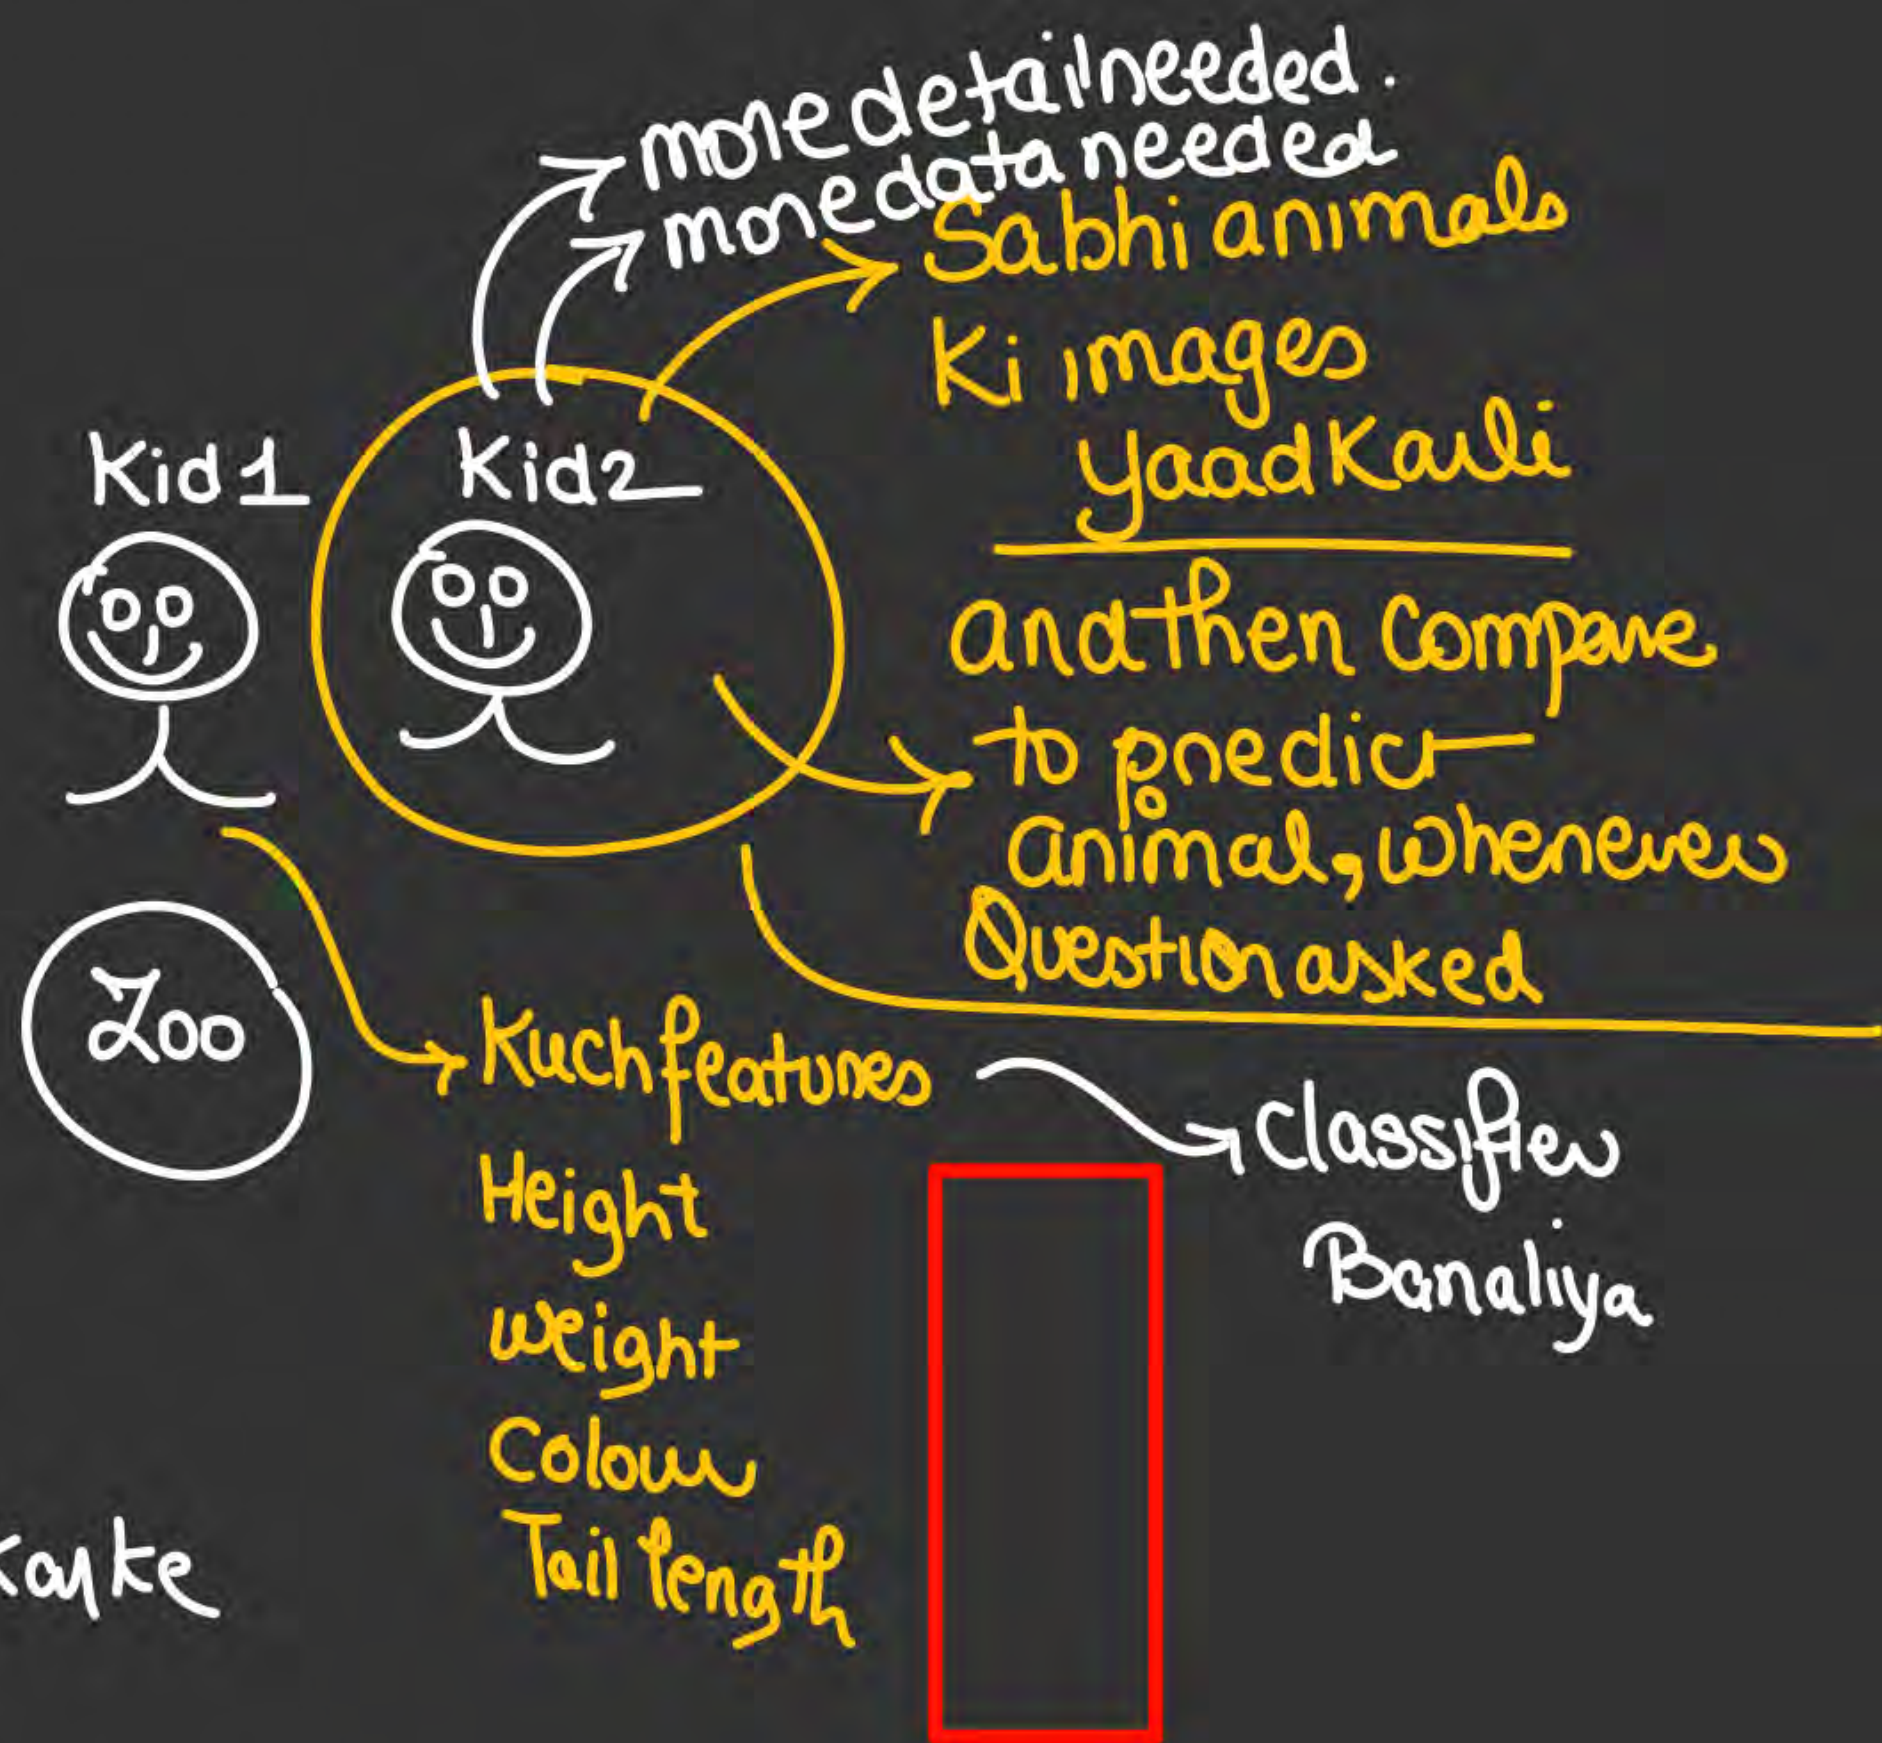 more detail needed.
more data needed
Sabhi animals
Ki images
yaad Karli
and then compare
to predict
animal, whenever
Question asked
Kid 1
Kid 2
Zoo
Kuch features
Height
weight
Colour
Tail length
Classifier
Banaliya
Karke